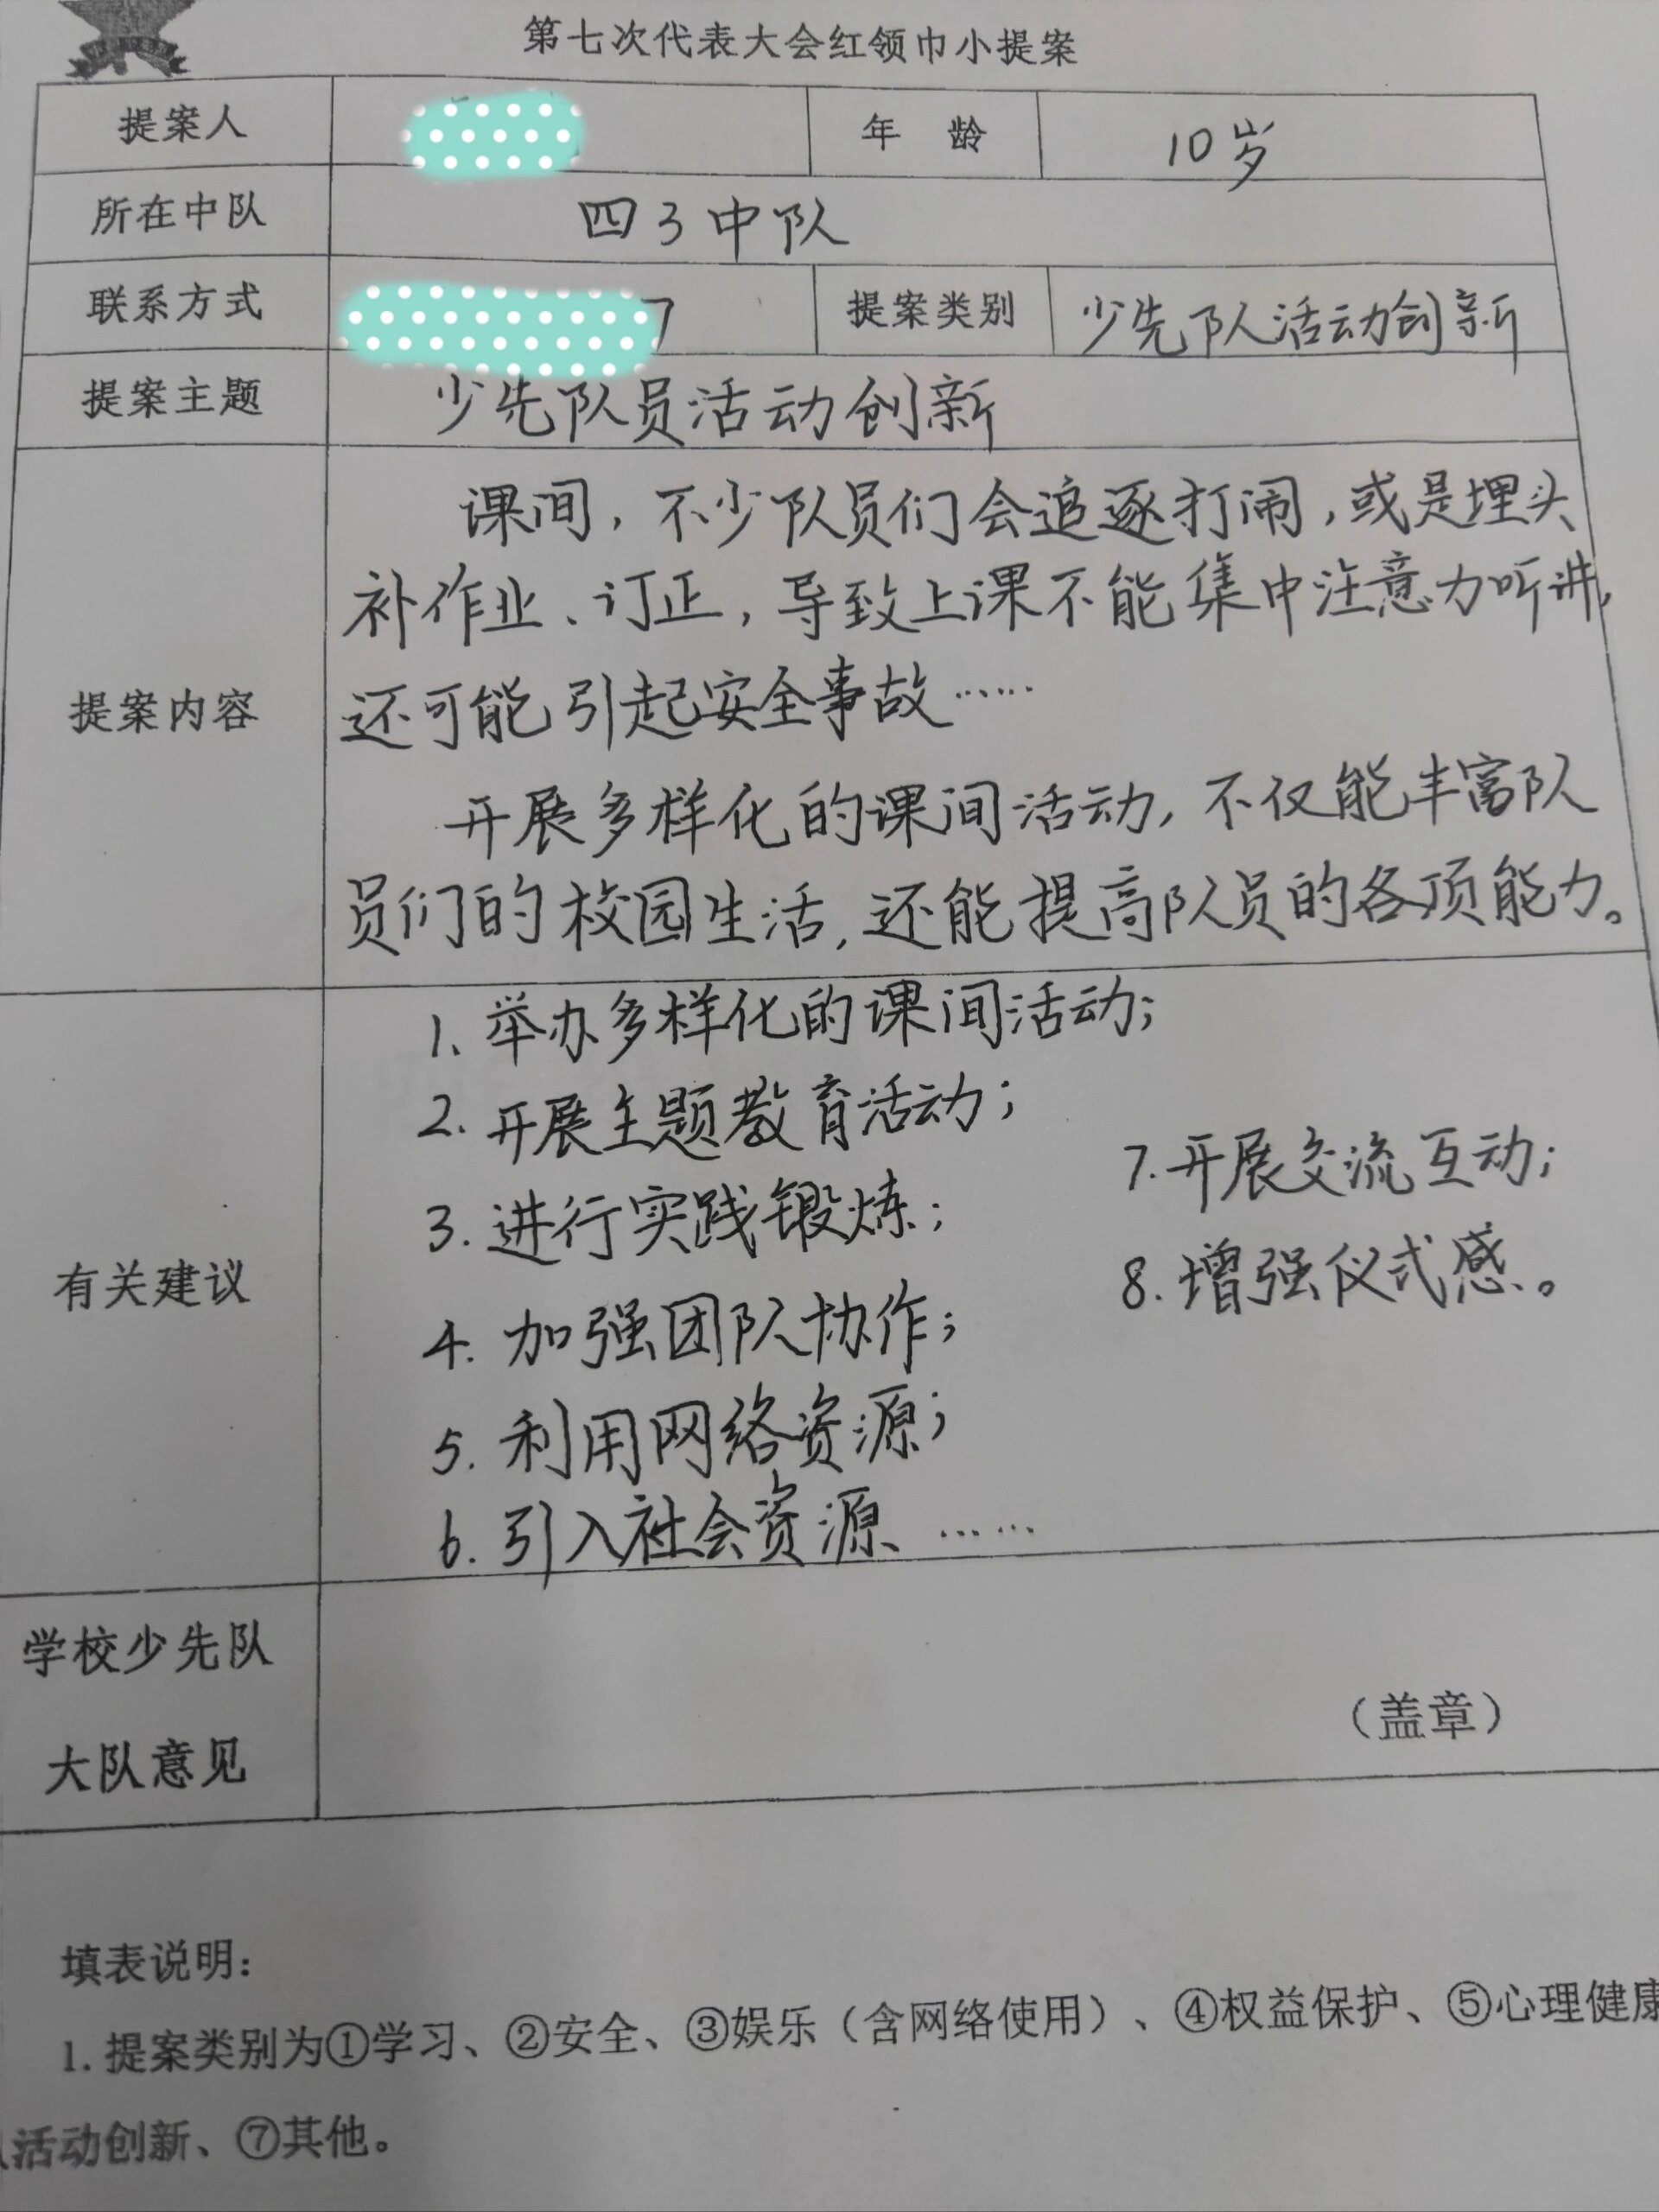 第七次代表大会红领巾小提案
提案人 年 龄 10岁
所在中队 四3中队
联系方式 7 提案类别 少先队活动创新
提案主题 少先队员活动创新
提案内容
课间，不少队员们会追逐打闹，或是埋头
补作业、订正，导致上课不能集中注意力听讲，
还可能引起安全事故……
开展多样化的课间活动，不仅能丰富队
员们的校园生活，还能提高队员的各项能力。
有关建议
1、举办多样化的课间活动；
2.开展主题教育活动；
3.进行实践锻炼；
4.加强团队协作；
5.利用网络资源；
6.引入社会资源……
7.开展交流互动；
8.增强仪式感。
学校少先队
大队意见
（盖章）
填表说明：
1.提案类别为①学习、②安全、③娱乐（含网络使用）、④权益保护、⑤心理健康
活动创新、⑦其他。